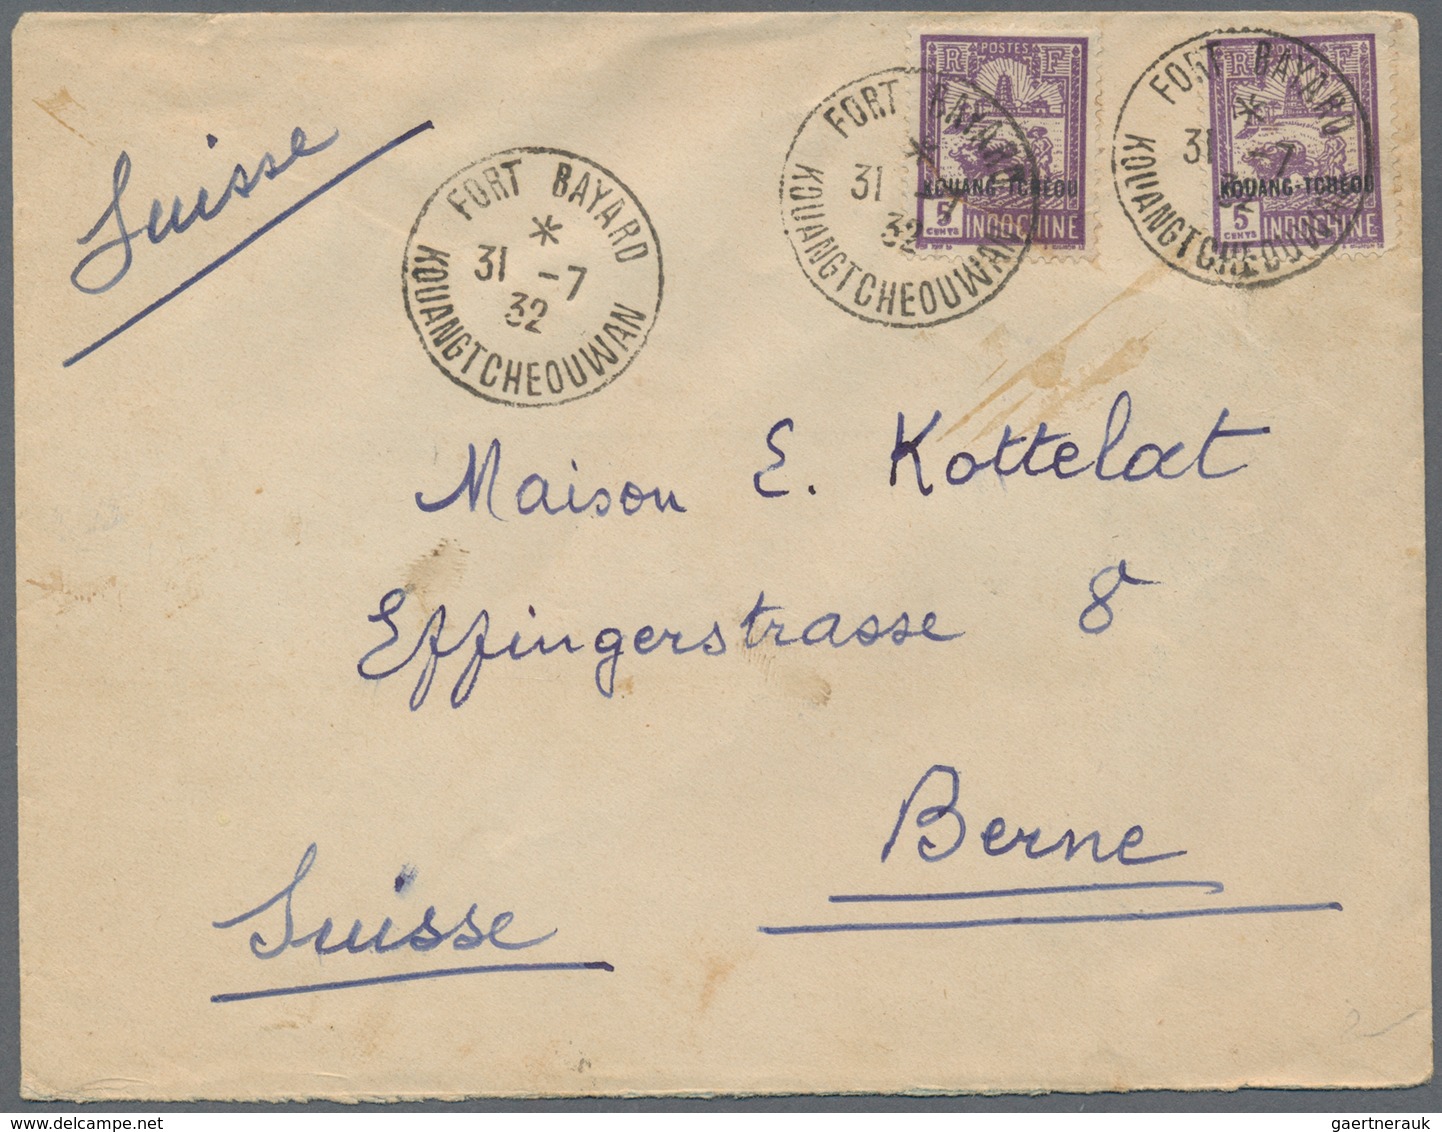 Suisse
FORT BAYARD
31 -7
32
KOUANGTCHEOUWAN
POSTES
R F
KOUANG-TCHEOU
5
CENTS
INDOCHINE
FORT BAYARD
31 -7
32
KOUANGTCHEOUWAN
POSTES
R F
KOUANG-TCHEOU
5
CENTS
INDOCHINE
FORT BAYARD
31 -7
32
KOUANGTCHEOUWAN
Maison E. Kottelat
Effingerstrasse 8
Berne
Suisse
gaertnerauk